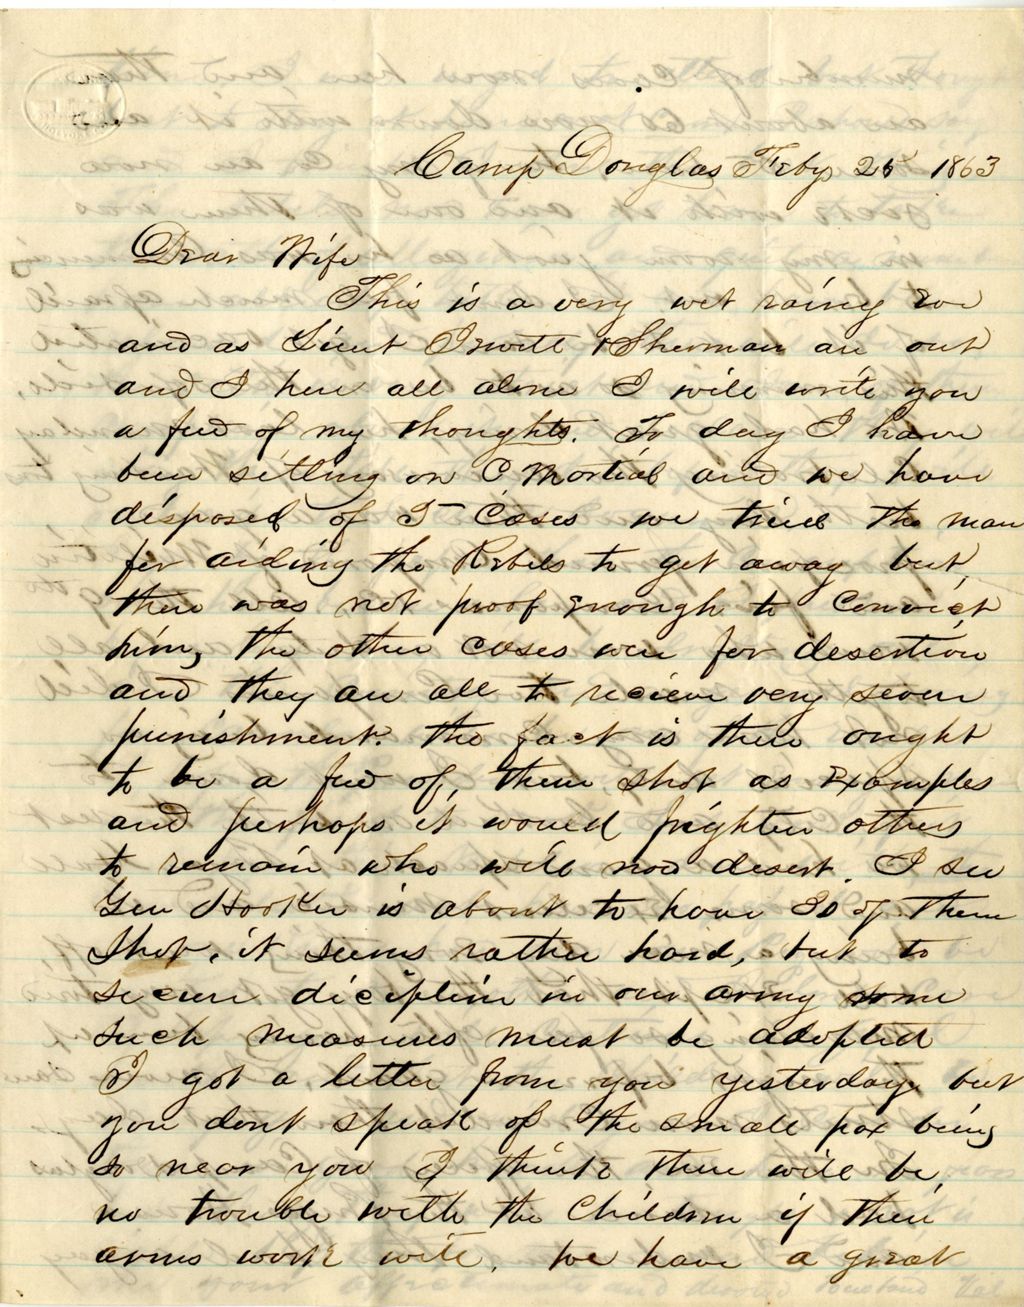 Camp Douglas Feby 25 1863
Dear Wife
This is a very wet rainy Eve
and as Lieut Dewitt & Sherman are out
and I here all alone I will write you
a few of my thoughts. To day I have
been sitting on C Martial and we have
disposed of 5 Cases we tried the man
for aiding the Rebels to get away but
there was not proof enough to Convict
him, the other cases were for desertion
and they are all to recieve very severe
punishment. the fact is there ought
to be a few of, them shot as Examples
and perhaps it would frighten others
to remain who will now desert. I see
Gen Hooker is about to have 30 of them
Shot. it seems rather hard, but to
secure diciplin in our army some
such measures must be adopted
I got a letter from you yesterday but
you dont speak of the small pox being
so near you I think there will be,
no trouble with the Children if their
arms work well. We have a great